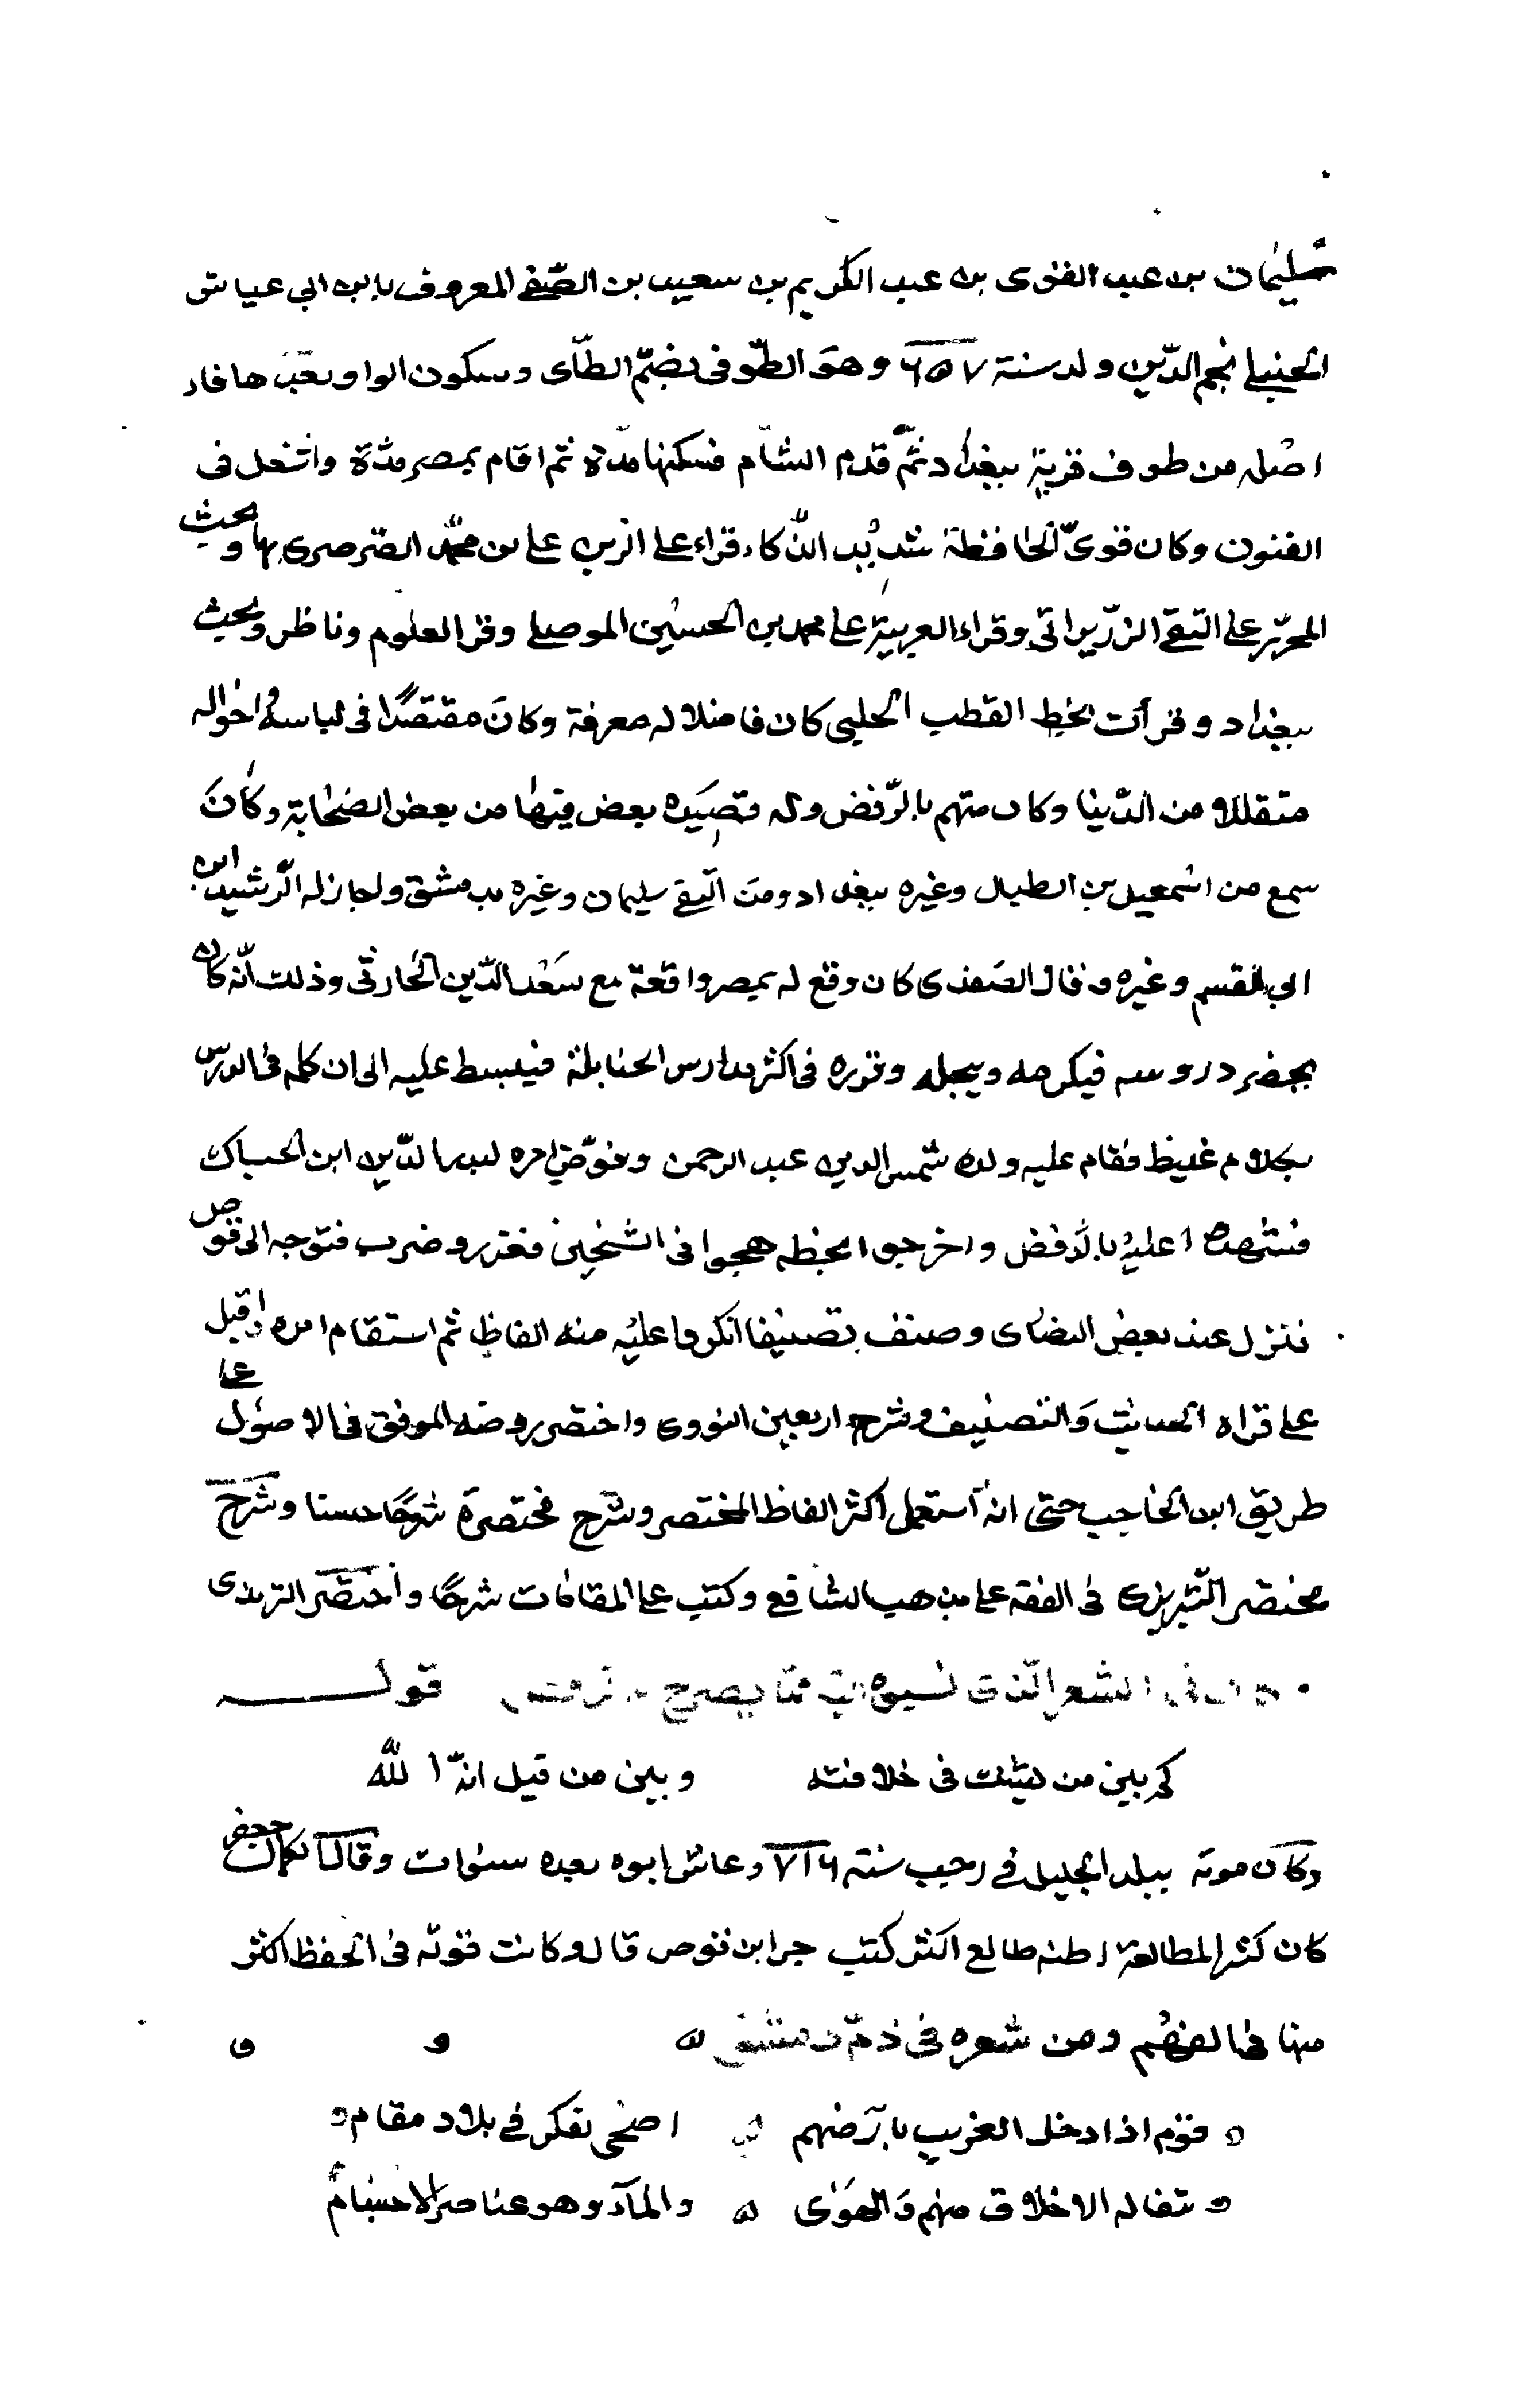 سليمان بن عبد القوى بن عبد الكريم بن سعيد بن الصفى المعروف بابن ابى عباس
الحنبلى نجم الدّين ولد سنة ٦٥٧ وهو الطّوفى بضمّ الطاى وسكون الواو وبعدها فاء
اصله من طوف قرية ببغداد ثمّ قدم الشام فسكنها مدّة ثم اقام بمصر مدّة واشتغل فى
الفنون وكان قوىّ الحافظة شديد الذّكاء قراء على الزين على بن محمّد الصرصرى بها وبحث
المحرّر على التقى الزّريراتى وقراء العربية على محمد بن الحسين الموصلى وقرا العلوم وناظر وبحث
ببغداد وقرأت بخط القطب الحلبى كان فاضلا له معرفة وكان مقتصدًا فى لباسه واحواله
متقللا من الدّنيا وكان متهم بالرّفض وله قصيده بعض فيها من بعض الصحابة وكان
سمع من اسمعيل بن الطبال وغيره ببغداد ومن التقى سليمان وغيره بدمشق واجاز له الرّشيد ابن
ابى القسم وغيره وقال الصفدى كان وقع له بمصر واقعة مع سعد الدّين الحارثى وذلك انّه كان
يحضر دروسه فيكرمه ويبجله وقرره فى اكثر مدارس الحنابلة فيبسط عليه الى ان كلمه فى الدرس
بكلام غليظ فقام عليه ولده شمس الدين عبد الرحمن وفوّض امره لبدر الدّين ابن الحباك
فشهدوا عليه بالرّفض واخرجوا بخطه هجوا فى الشيخين فعزر وضرب فتوجه الى قوص
فنزل عند بعض النصاى وصنف تصنيفا انكروا عليه منه الفاظ ثم استقام امره واقبل
على قراه الحديث والتصنيف وشرح اربعين النووى واختصر روضه الموفق فى الاصول على
طريق ابن الحاجب حتى انه استعمل اكثر الفاظ المختصر وشرح مختصرة شرحًا حسنا وشرح
مختصر التّبريزى فى الفقه على مذهب الشافعى وكتب على المقامات شرحًا واختصر الترمذى
فى الشعر الّذى نسبوه اليه ممّا يصرح قوله
كم بين من شك فى خلافته وبين من قيل انّه الله
وكان موته ببلد الخليل فى رجب سنة ٧١٦ وعاش ابوه بعده سنوات وقال الكمال جعفر
كان كثير المطالعة اظنه طالع اكثر كتب خزاين قوص قال وكانت قوته فى الحفظ اكثر
منها فى الفهم ومن شعره فى ذمّ دمشق
قوم اذا دخل الغريب بارضهم اضحى يفكر فى بلاد مقام
بثقاله الاخلاق منهم والهوى والمآء وهو عناصر الاجسام